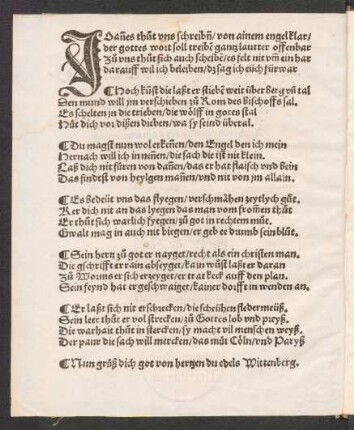 JOañes thůt vns schreibñ/ von ainem engel klar/
der gottes wort soll treibē gantz lautter offenbar
Zů vns thůt sich auch scheibē/ es felt nit vm̃ ein har
darauff wil ich beleiben/ dz sag ich eüch fürwar
¶ Hoch küst die laßt er stiebē weit über berg vñ tal
Den mund will jm verschieben zů Rom des bischoffs sal.
Es schelten jn die trieben/ die wölff in gotes stal
Hüt dich vor dißen dieben/ wa sy seind überal.
¶ Du magst nun wol erkeñen/ den Engel den ich mein
Hernach will ich in neñen/ die sach die ist nit klein.
Laß dich nit füren von dañen/ das er hat flaisch vnd bein
Das findest von heylgen mañen/ vnd nit von jm allain.
¶ Es bedeüt vns das flyegen/ verschmåhen zeytlych gůt.
Ker dich nit an das lyegen das man vom from̃en thůt
Er thůt sich warlich fyegen/ zů got in rechtem můt.
Gwalt mag in auch nit biegen/ er geb ee dꝛumb sein blůt.
¶ Sein hertz zů got er nayget/ recht als ein christen man.
Die gschrifft er rain abseyget/ kain wůst laßt er daran
Zů Worms er sich erzeyget/ er trat keck auff den plan.
Sein feynd hat er geschwaiget/ kainer dorfft in wenden an.
¶ Er laßt sich nit erschrecken/ die scheühen fledermeüß.
Sein leer thůt er vol strecken/ zů Gottes lob vnd preyß.
Die warhait thůt in stercken/ sy macht vil menschen weyß.
Der paur die sach will mercken/ das můt Cöln/ vnd Paryß
¶ Nun grüß dich got von hertzen du edels Wittenberg.